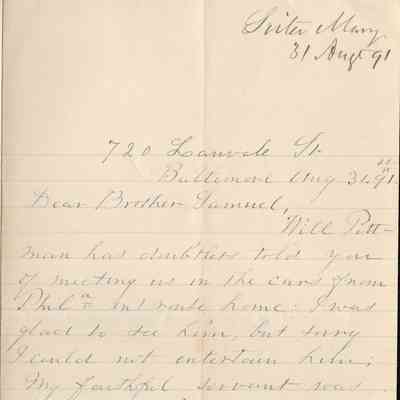 Sister Mary
31 Augt 91
720 Lanvale St.
Baltimore Aug 31st 91.
Dear Brother Samuel,
Will Pitt-
man has doubtless told you
of meeting us in the cars from
Phila en route home: I was
glad to see him, but sorry
I could not entertain him;
My faithful servant was